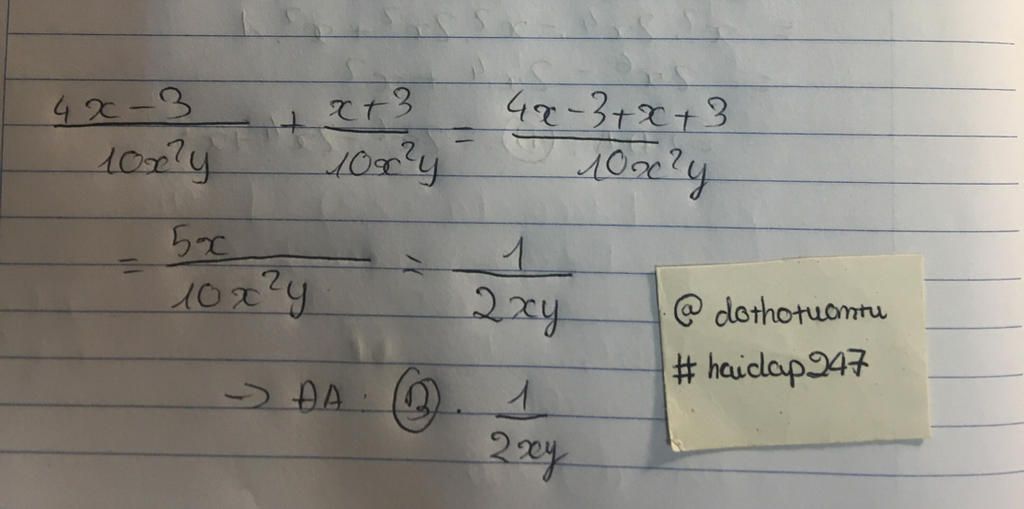 4x-3/10x²y + x+3/10x²y = 4x-3+x+3/10x²y
= 5x/10x²y = 1/2xy
→ ĐA: B. 1/2xy
@ dothotuantu
# haidap247